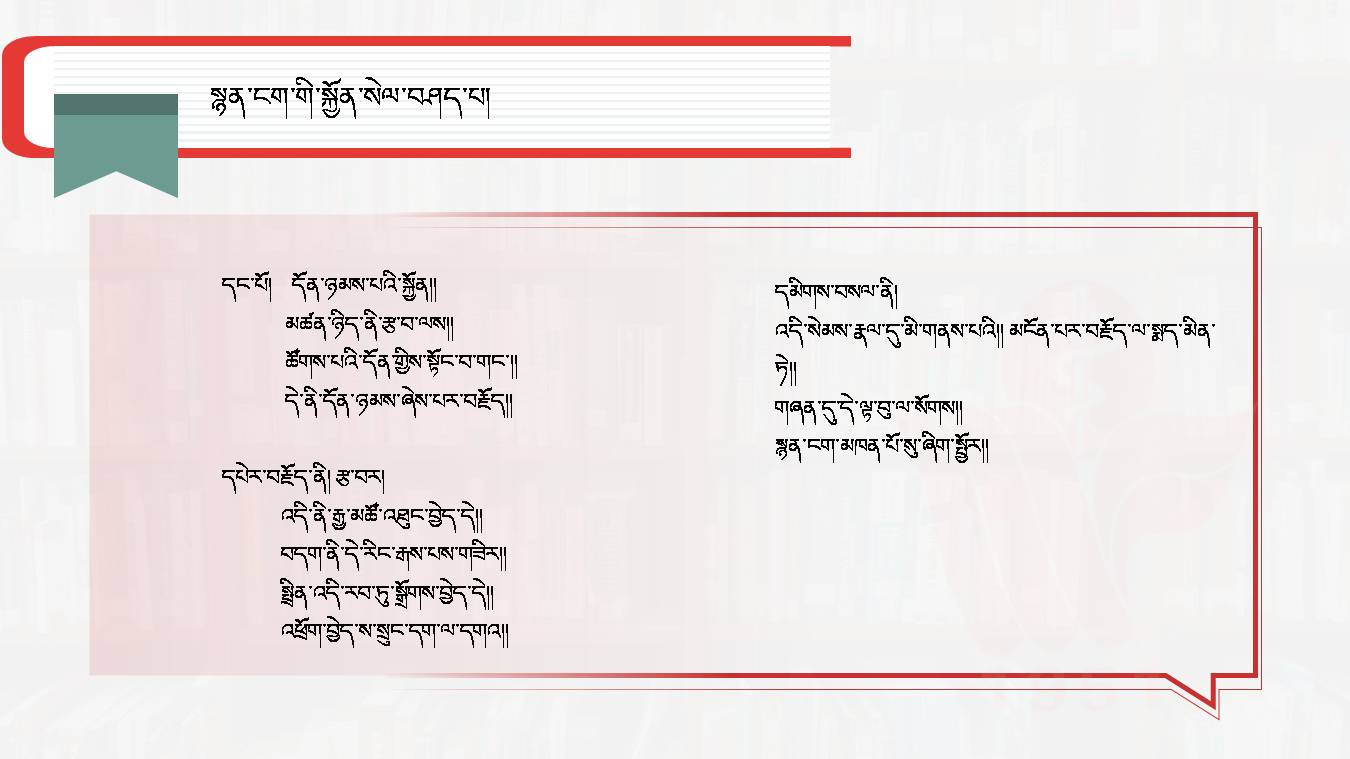 སྙན་ངག་གི་སྐྱོན་སེལ་བཤད་པ།
དང་པོ། དོན་ཉམས་པའི་སྐྱོན།།
མཚན་ཉིད་ནི་རྩ་བ་ལས།།
ཚོགས་པའི་དོན་གྱིས་སྟོང་བ་གང་།།
དེ་ནི་དོན་ཉམས་ཞེས་པར་བརྗོད།།
དཔེར་བརྗོད་ནི། རྩ་བར།
འདི་ནི་རྒྱ་མཚོ་འཐུང་བྱེད་དེ།།
བདག་ནི་དེ་རིང་རྒས་པས་གཟིར།།
སྤྲིན་འདི་རབ་ཏུ་སྒྲོགས་བྱེད་དེ།།
འཕྲོག་བྱེད་ས་སྲུང་དག་ལ་དགའ།།
དམིགས་བསལ་ནི།
འདི་སེམས་རྣལ་དུ་མི་གནས་པའི།། མངོན་པར་བརྗོད་ལ་སྨད་མིན་
ཏེ།།
གཞན་དུ་དེ་ལྟ་བུ་ལ་སོགས།།
སྙན་ངག་མཁན་པོ་སུ་ཞིག་སྦྱོར།།